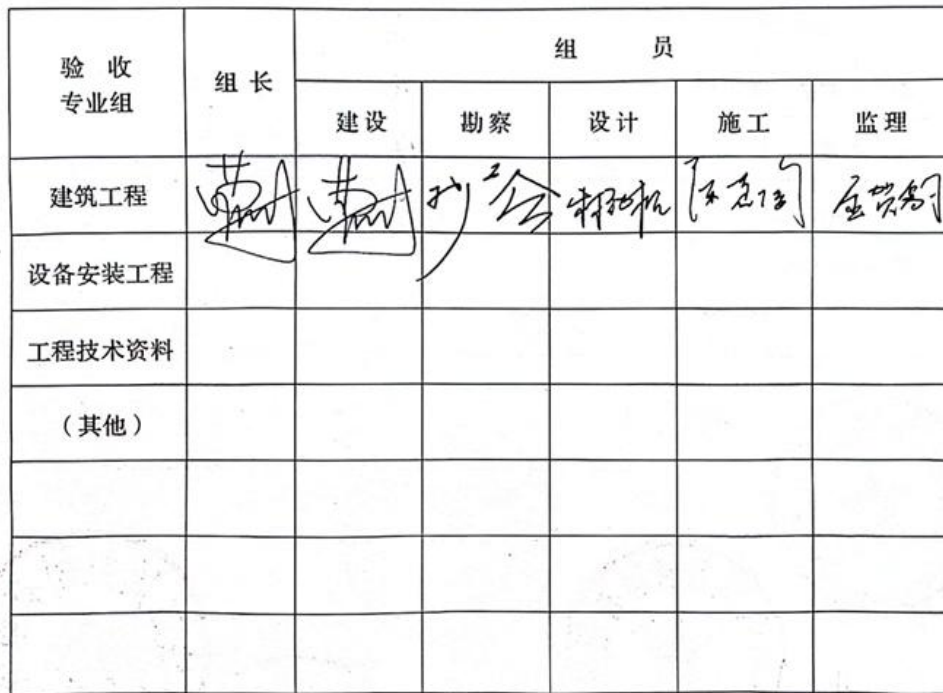 验收
专业组
组长
组员
建设
勘察
设计
施工
监理
建筑工程
设备安装工程
工程技术资料
（其他）